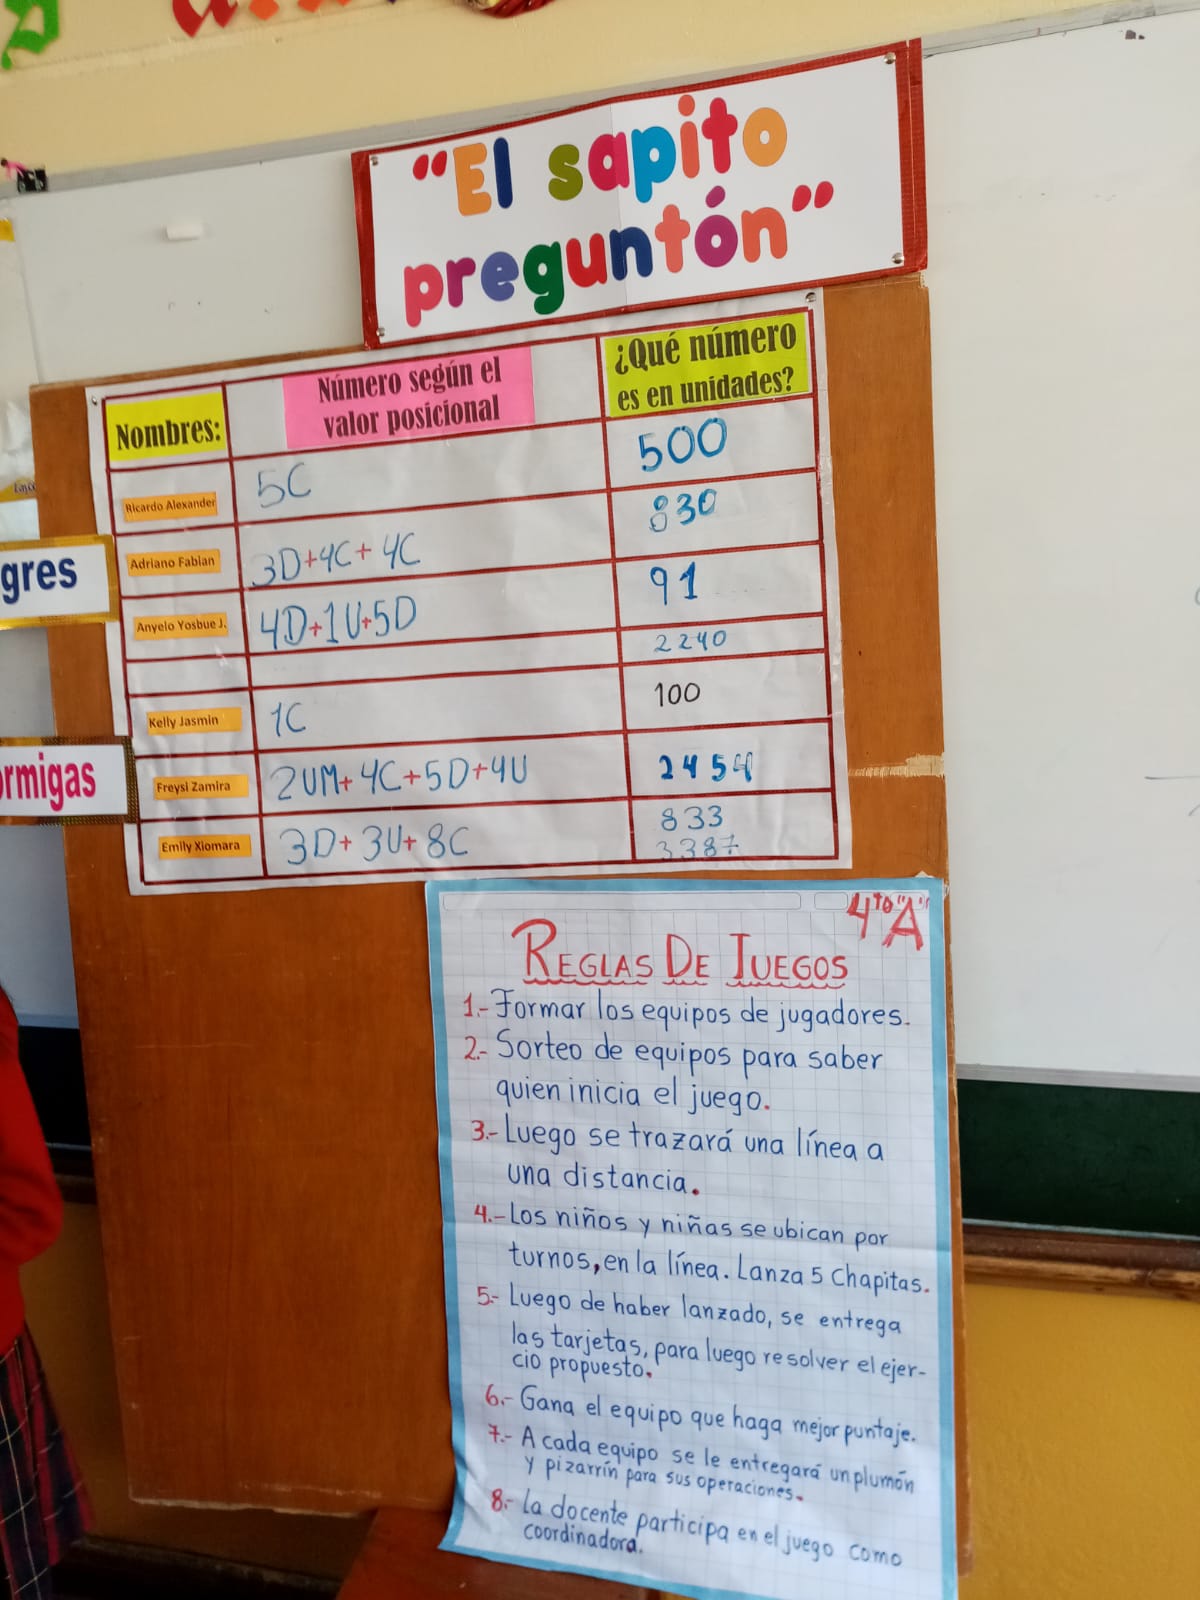 "El sapito
preguntón"
Nombres:
Número según el
valor posicional
¿Qué número
es en unidades?
Ricardo Alexander
5C
500
Adriano Fabian
3D+4C+ 4C
830
Anyelo Yosbue J.
4D+1U+5D
91
2240
Kelly Jasmin
1C
100
Freysi Zamira
2UM+4C+5D+4U
2454
Emily Xiomara
3D+3U+8C
833
3387
gres
ormigas
4to "A"
REGLAS DE JUEGOS
1.- Formar los equipos de jugadores.
2.- Sorteo de equipos para saber
quien inicia el juego.
3.- Luego se trazará una línea a
una distancia.
4.- Los niños y niñas se ubican por
turnos, en la línea. Lanza 5 Chapitas.
5.- Luego de haber lanzado, se entrega
las tarjetas, para luego resolver el ejer-
cio propuesto.
6.- Gana el equipo que haga mejor puntaje.
7.- A cada equipo se le entregará un plumón
y pizarrín para sus operaciones.
8.- La docente participa en el juego como
coordinadora.